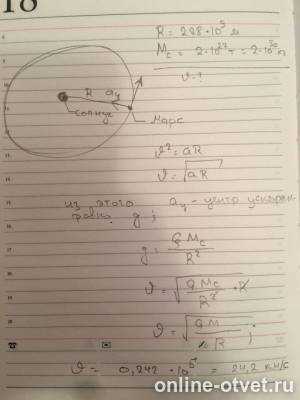 18
R = 228·10⁹ м
Mc = 2·10²⁷ т = 2·10³⁰ кг
υ - ?
R aц
Солнце
Марс
υ² = aR
υ = √aR
из этого aц - центр ускорен.
равно g;
g = GMc / R²
υ = √(GMc / R² · R)
υ = √(GM / R);
υ = 0,242·10⁵ = 24,2 км/с
online-otvet.ru